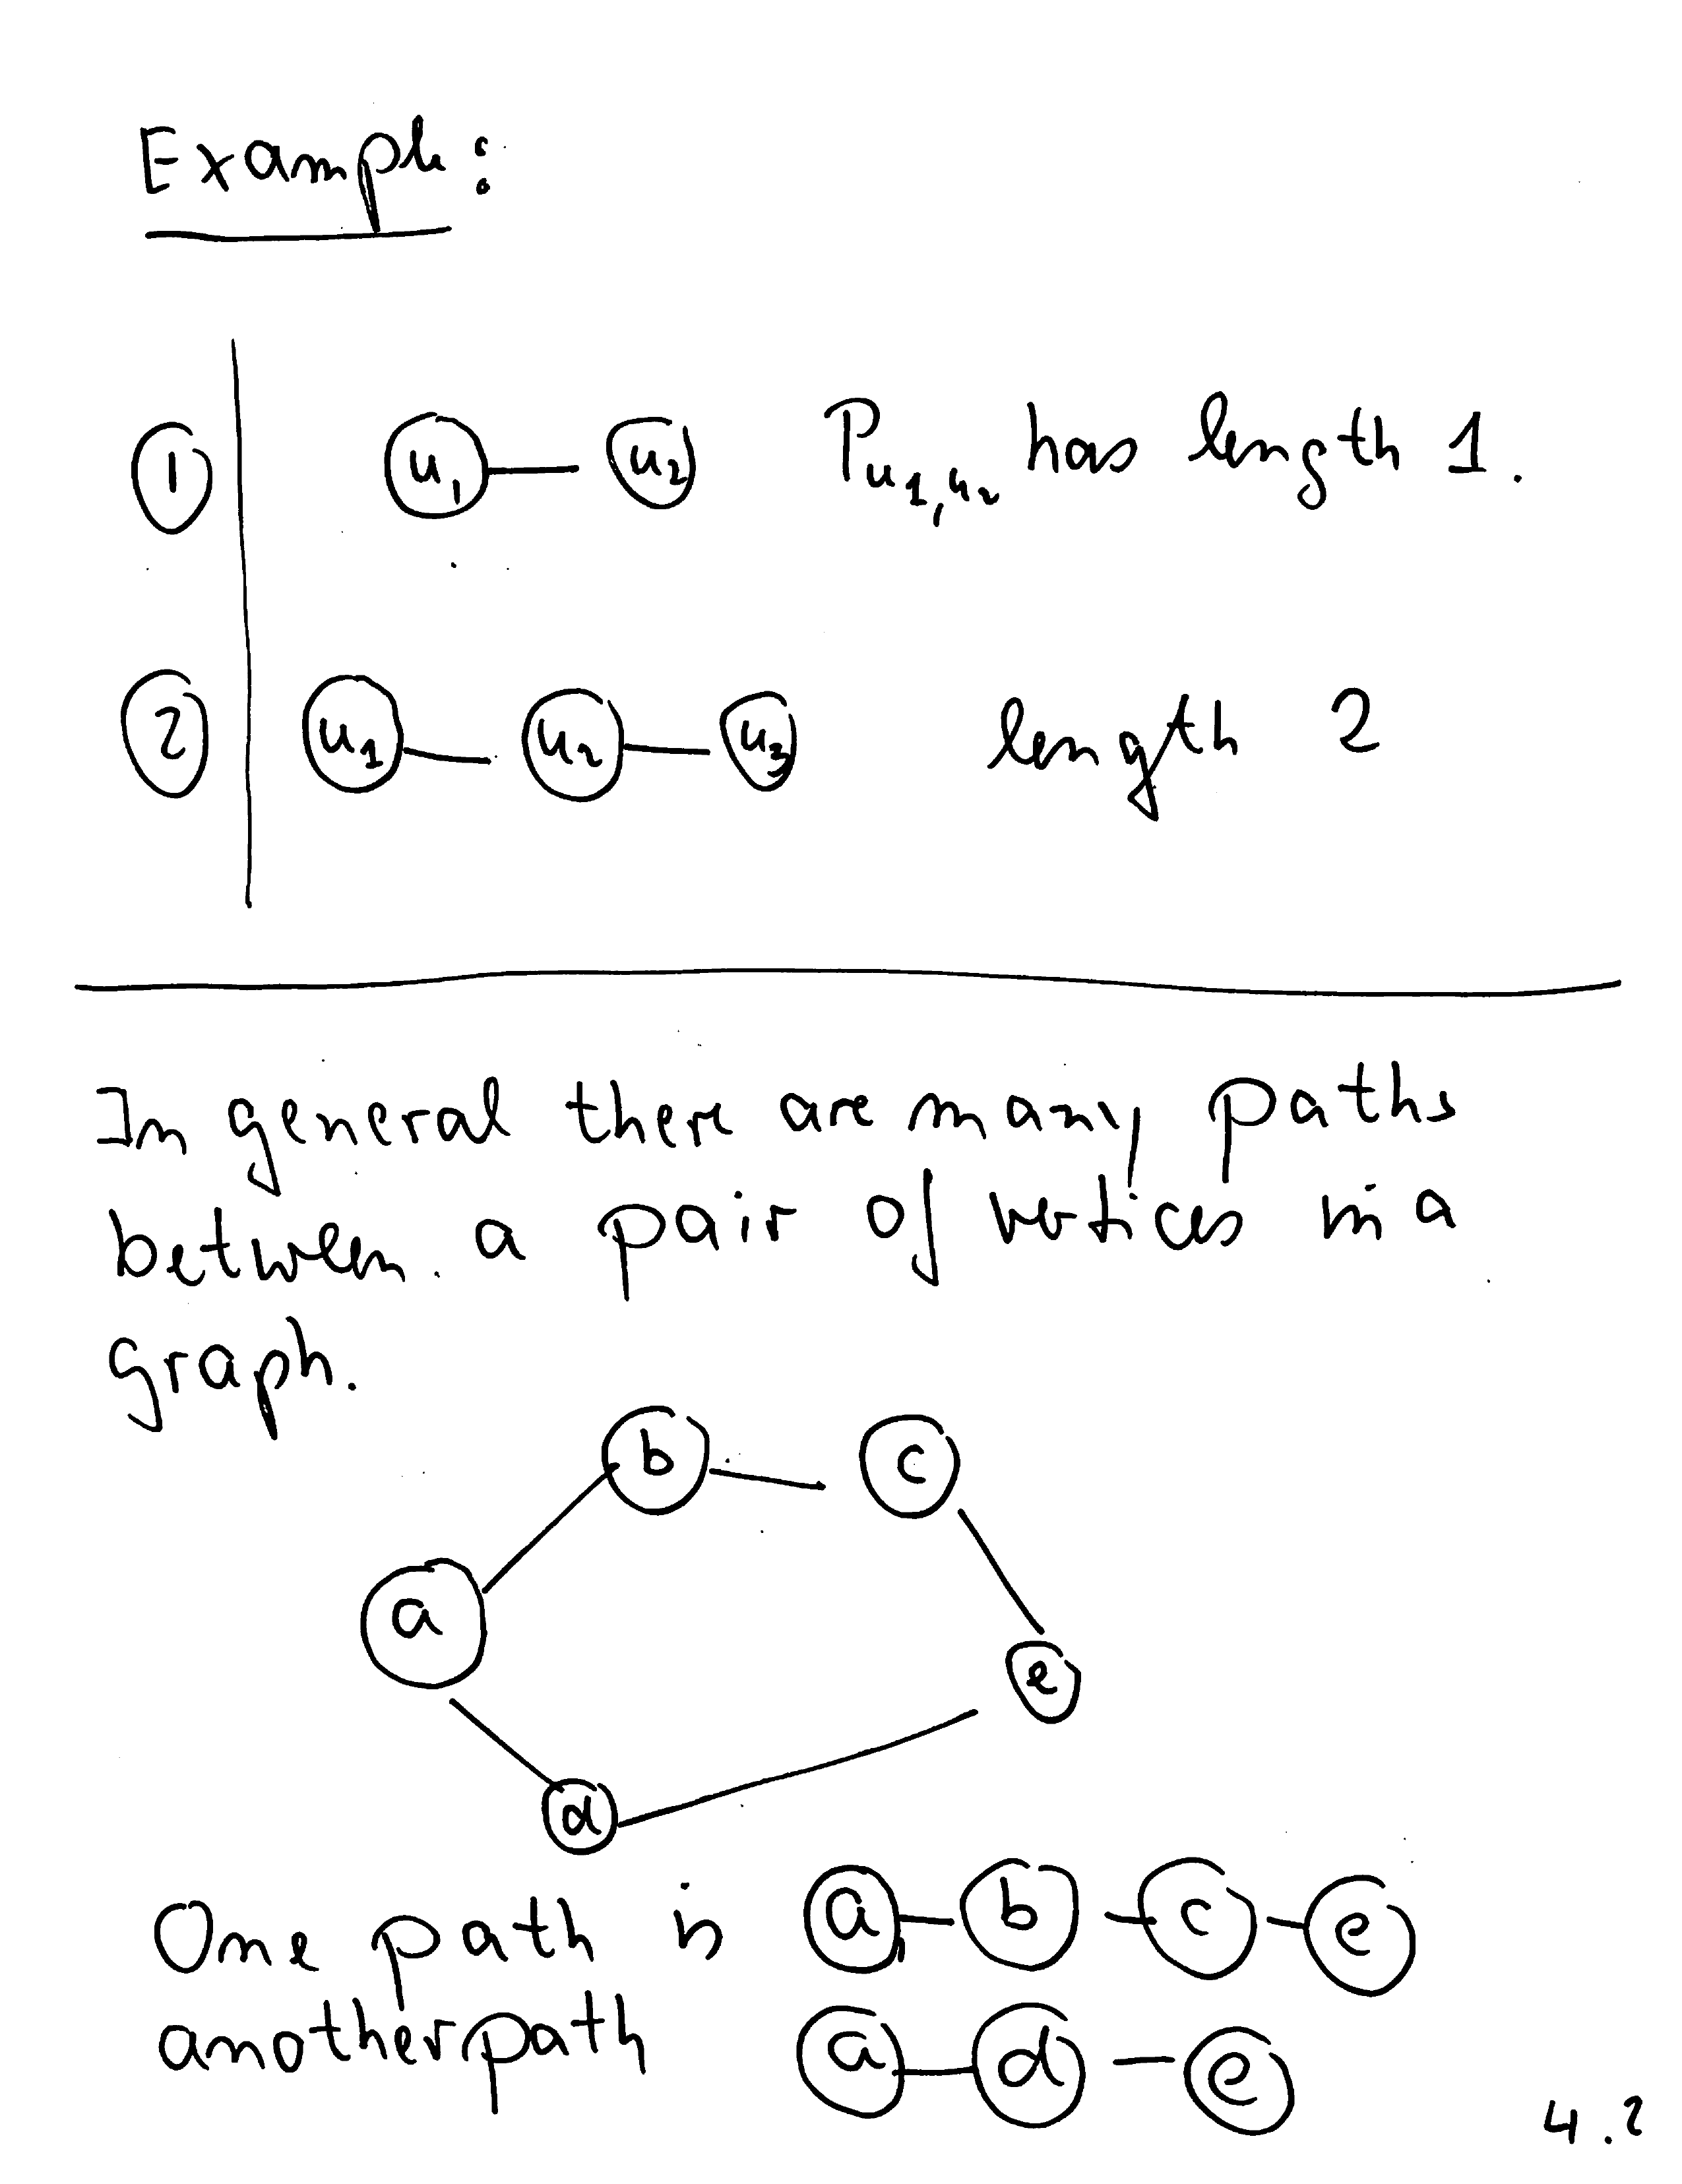 Example:
1 u1 u2 Pu1,u2 has length 1.
2 u1 u2 u3 length 2
In general there are many paths
between a pair of vertices in a
graph.
b c
a
e
d
One path is a b c e
another path a d e
4.2